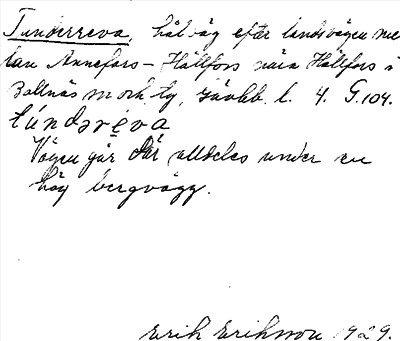 Tunderreva, hålväg efter landsvägen mel
lan Annefors – Hällfors nära Hällfors i
Bollnäs m och ty, Gävlb. l. 4. G.104.
túndəreva
Vägen går där alldeles under en
hög bergvägg.
Erik Eriksson 1929.